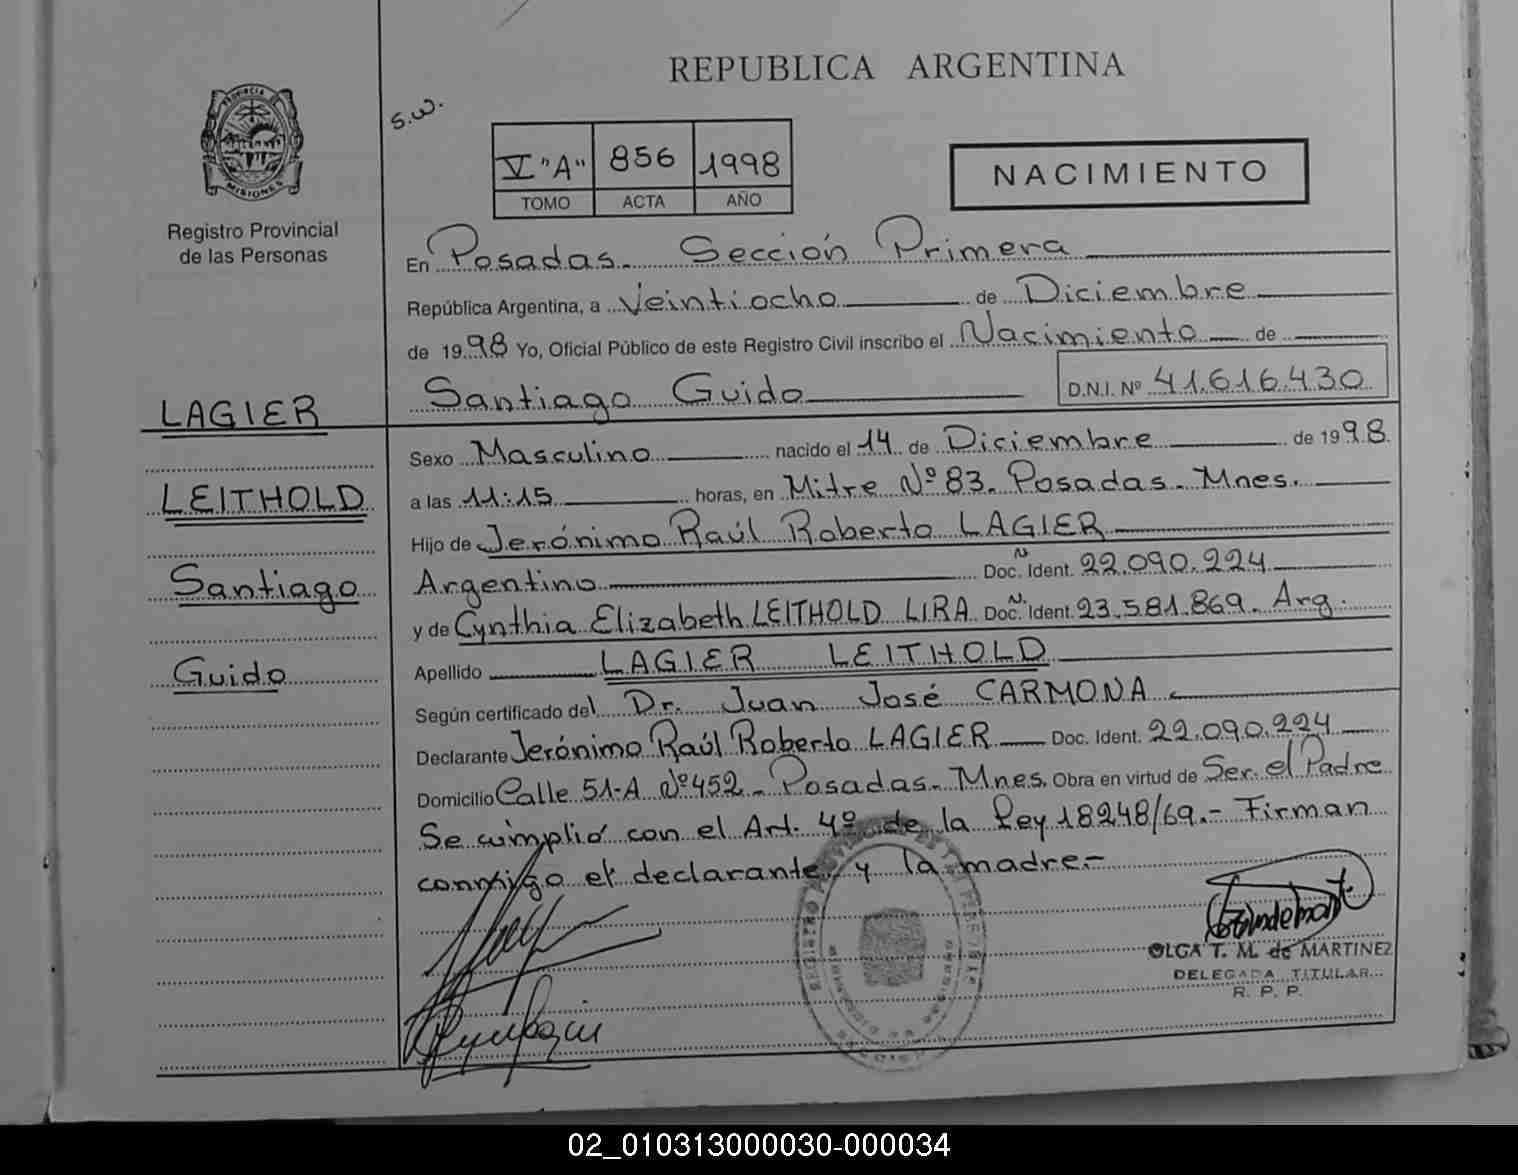 REPUBLICA ARGENTINA
S.W.
PROVINCIA DE
MISIONES
Registro Provincial
de las Personas
V "A" 856 1998
TOMO ACTA AÑO
NACIMIENTO
En Posadas. Sección Primera
República Argentina, a Veintiocho de Diciembre
de 1998 Yo, Oficial Público de este Registro Civil inscribo el Nacimiento de
Santiago Guido D.N.I. Nº 41.616.430
LAGIER
LEITHOLD
Santiago
Guido
Sexo Masculino nacido el 14 de Diciembre de 1998.
a las 11:15 horas, en Mitre Nº 83. Posadas. Mnes.
Hijo de Jerónimo Raúl Roberto LAGIER
Argentino Doc. N Ident. 22.090.224
y de Cynthia Elizabeth LEITHOLD LIRA Doc. N. Ident. 23.581.869. Arg.
Apellido LAGIER LEITHOLD
Según certificado del Dr. Juan José CARMONA
Declarante Jerónimo Raúl Roberto LAGIER Doc. Ident. 22.090.224
Domicilio Calle 51-A Nº 452 - Posadas. Mnes. Obra en virtud de Ser el Padre
Se cumplió con el Art. 4º de la Ley 18248/69.- Firman
conmigo el declarante y la madre.-
OLGA T. M. de MARTINEZ
DELEGADA TITULAR
R. P. P.
02_010313000030-000034